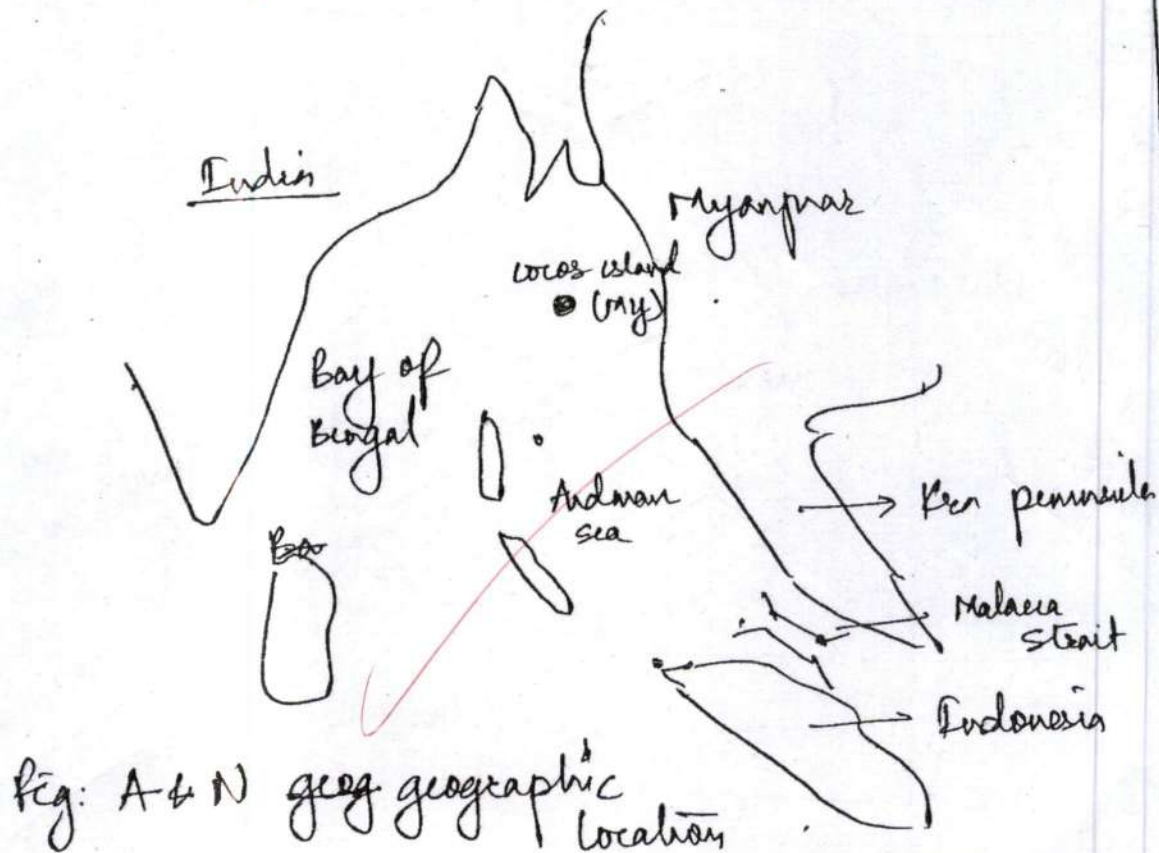 India
Myanmar
Cocos island
(My)
Bay of
Bengal
Andman
sea
Kra peninsula
Malacca
Strait
Indonesia
Fig: A & N geog geographic
location